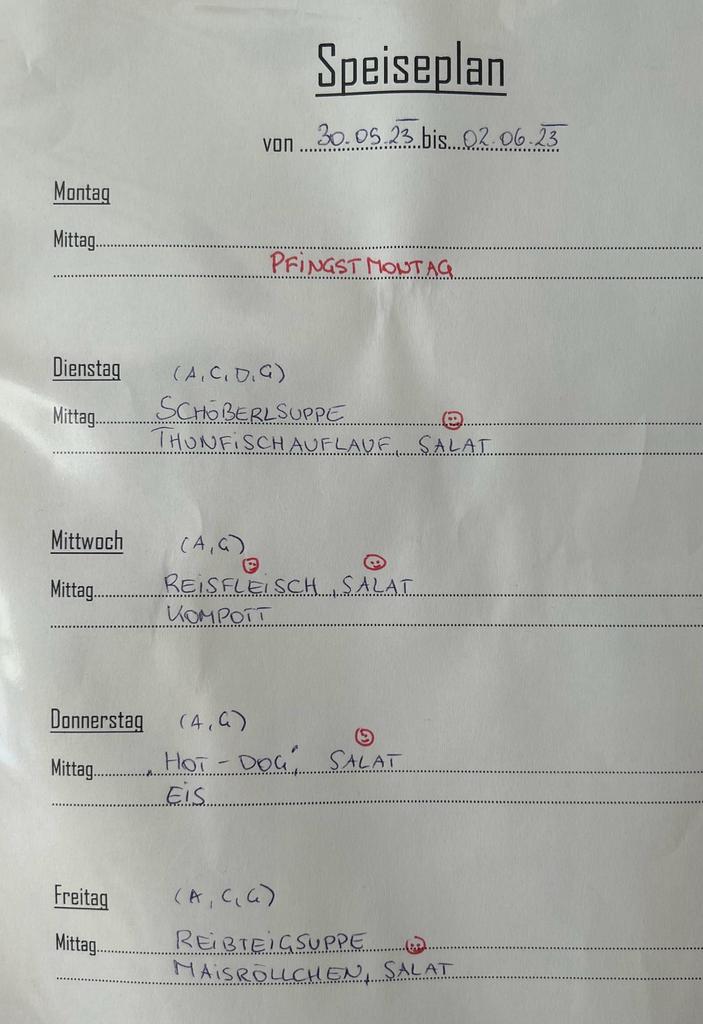 Speiseplan
von ... 30.05.23 bis... 02.06.23
Montag
Mittag
PFINGSTMONTAG
Dienstag (A, C, D, G)
Mittag SCHÖBERLSUPPE
THUNFISCHAUFLAUF, SALAT
Mittwoch (A, G)
Mittag REISFLEISCH, SALAT
KOMPOTT
Donnerstag (A, G)
Mittag „HOT-DOG", SALAT
EIS
Freitag (A, C, G)
Mittag REIBTEIGSUPPE
MAISRÖLLCHEN, SALAT